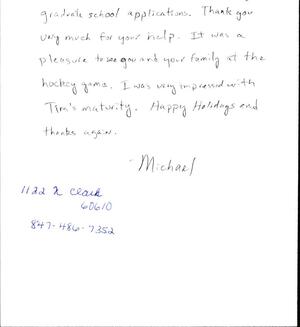 graduate school applications. Thank you
very much for your help. It was a
pleasure to see you and your family at the
hockey game. I was very impressed with
Tim's maturity. Happy Holidays and
thanks again.
-Michael
1122 N Clark
60610
847-486-7352